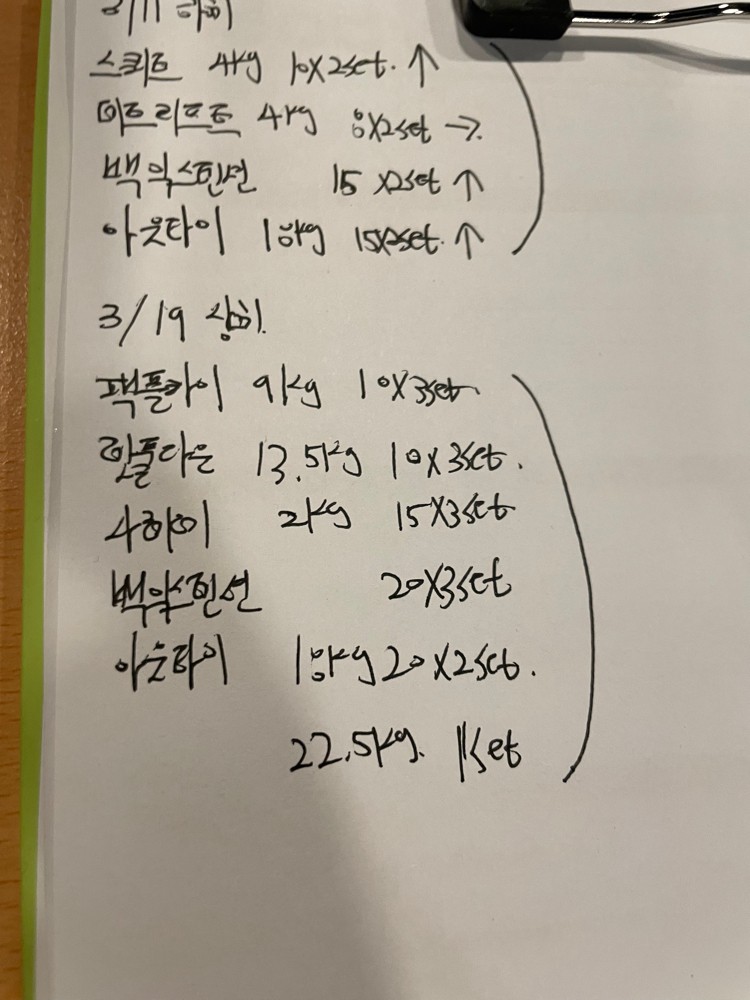 스쿼트 4kg 10X2set. ↑
데드리프트 4kg 8X2set →.
백익스텐션 15 X2set ↑
아웃타이 18kg 15X2set. ↑
3/19 상하.
팩플라이 9kg 10X3set.
랫풀다운 13.5kg 10X3set.
사하이 2kg 15X3set
백익스텐션 20X3set
아웃타이 18kg 20X2set.
22.5kg. 1set